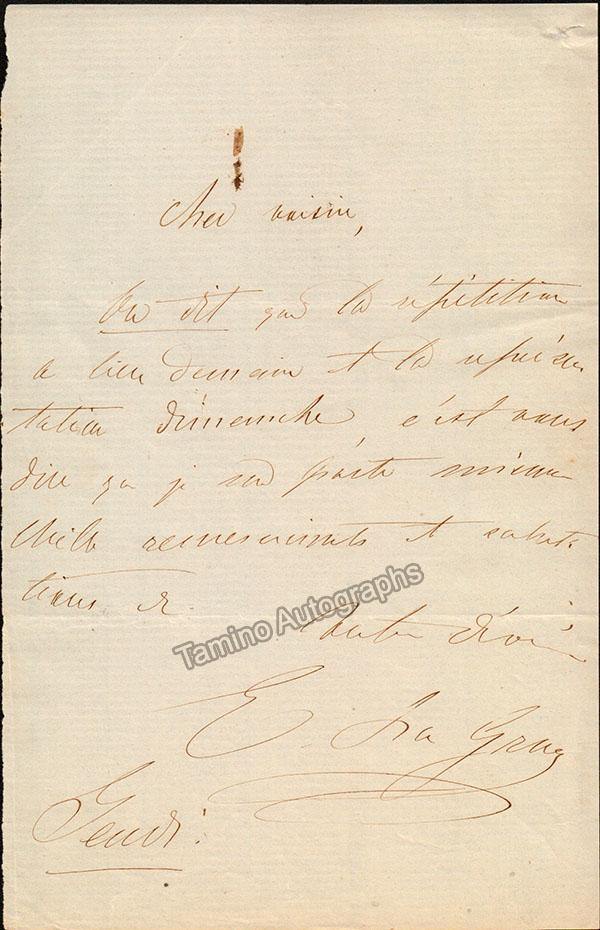 Cher voisin,
On dit que la répétition
a lieu demain et la représen
tation dimanche, c'est vous
dire que je me porte mieux
Mille remerciments et saluta
tions de
Votre dévouée
E. La Grua
Jeudi.
Tamino Autographs